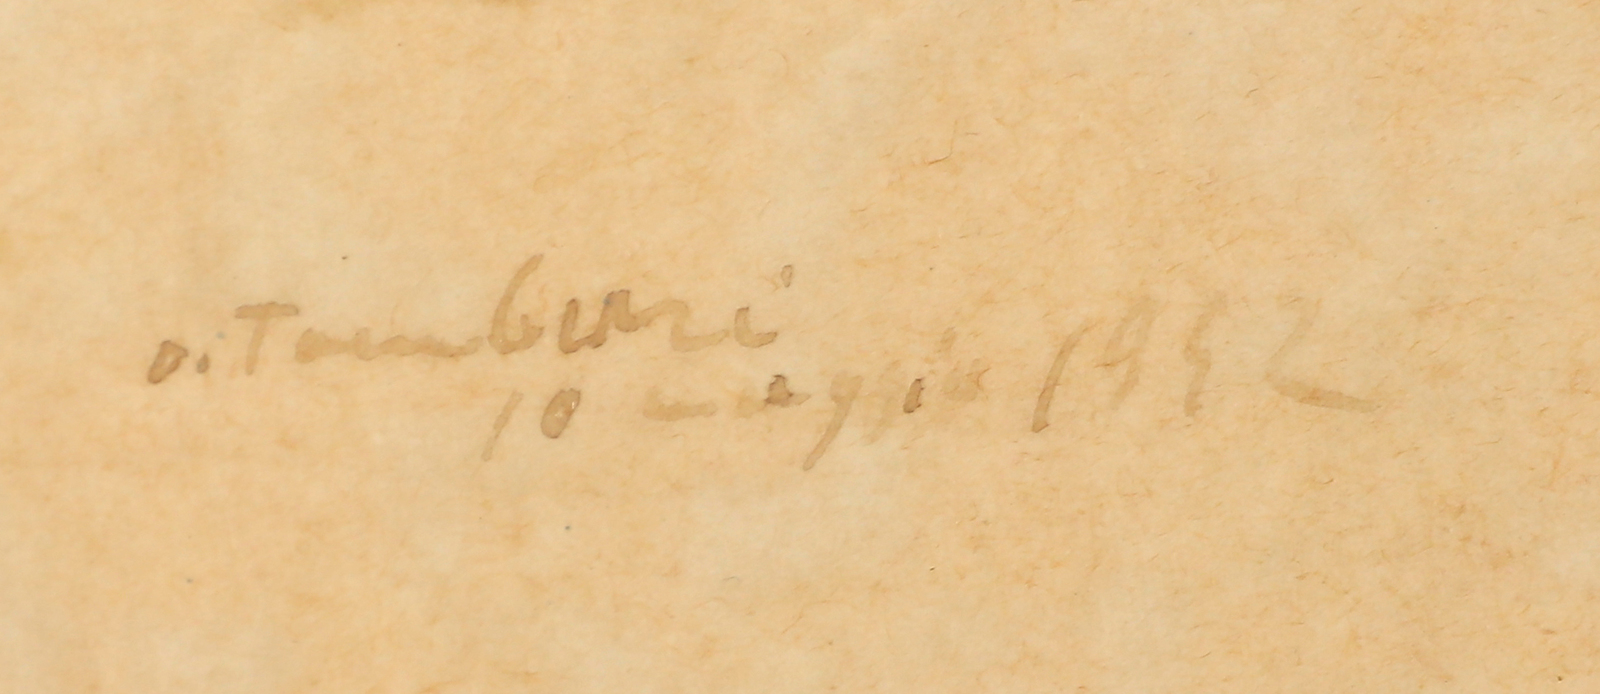 O. Tamburi
10 maggio 1952